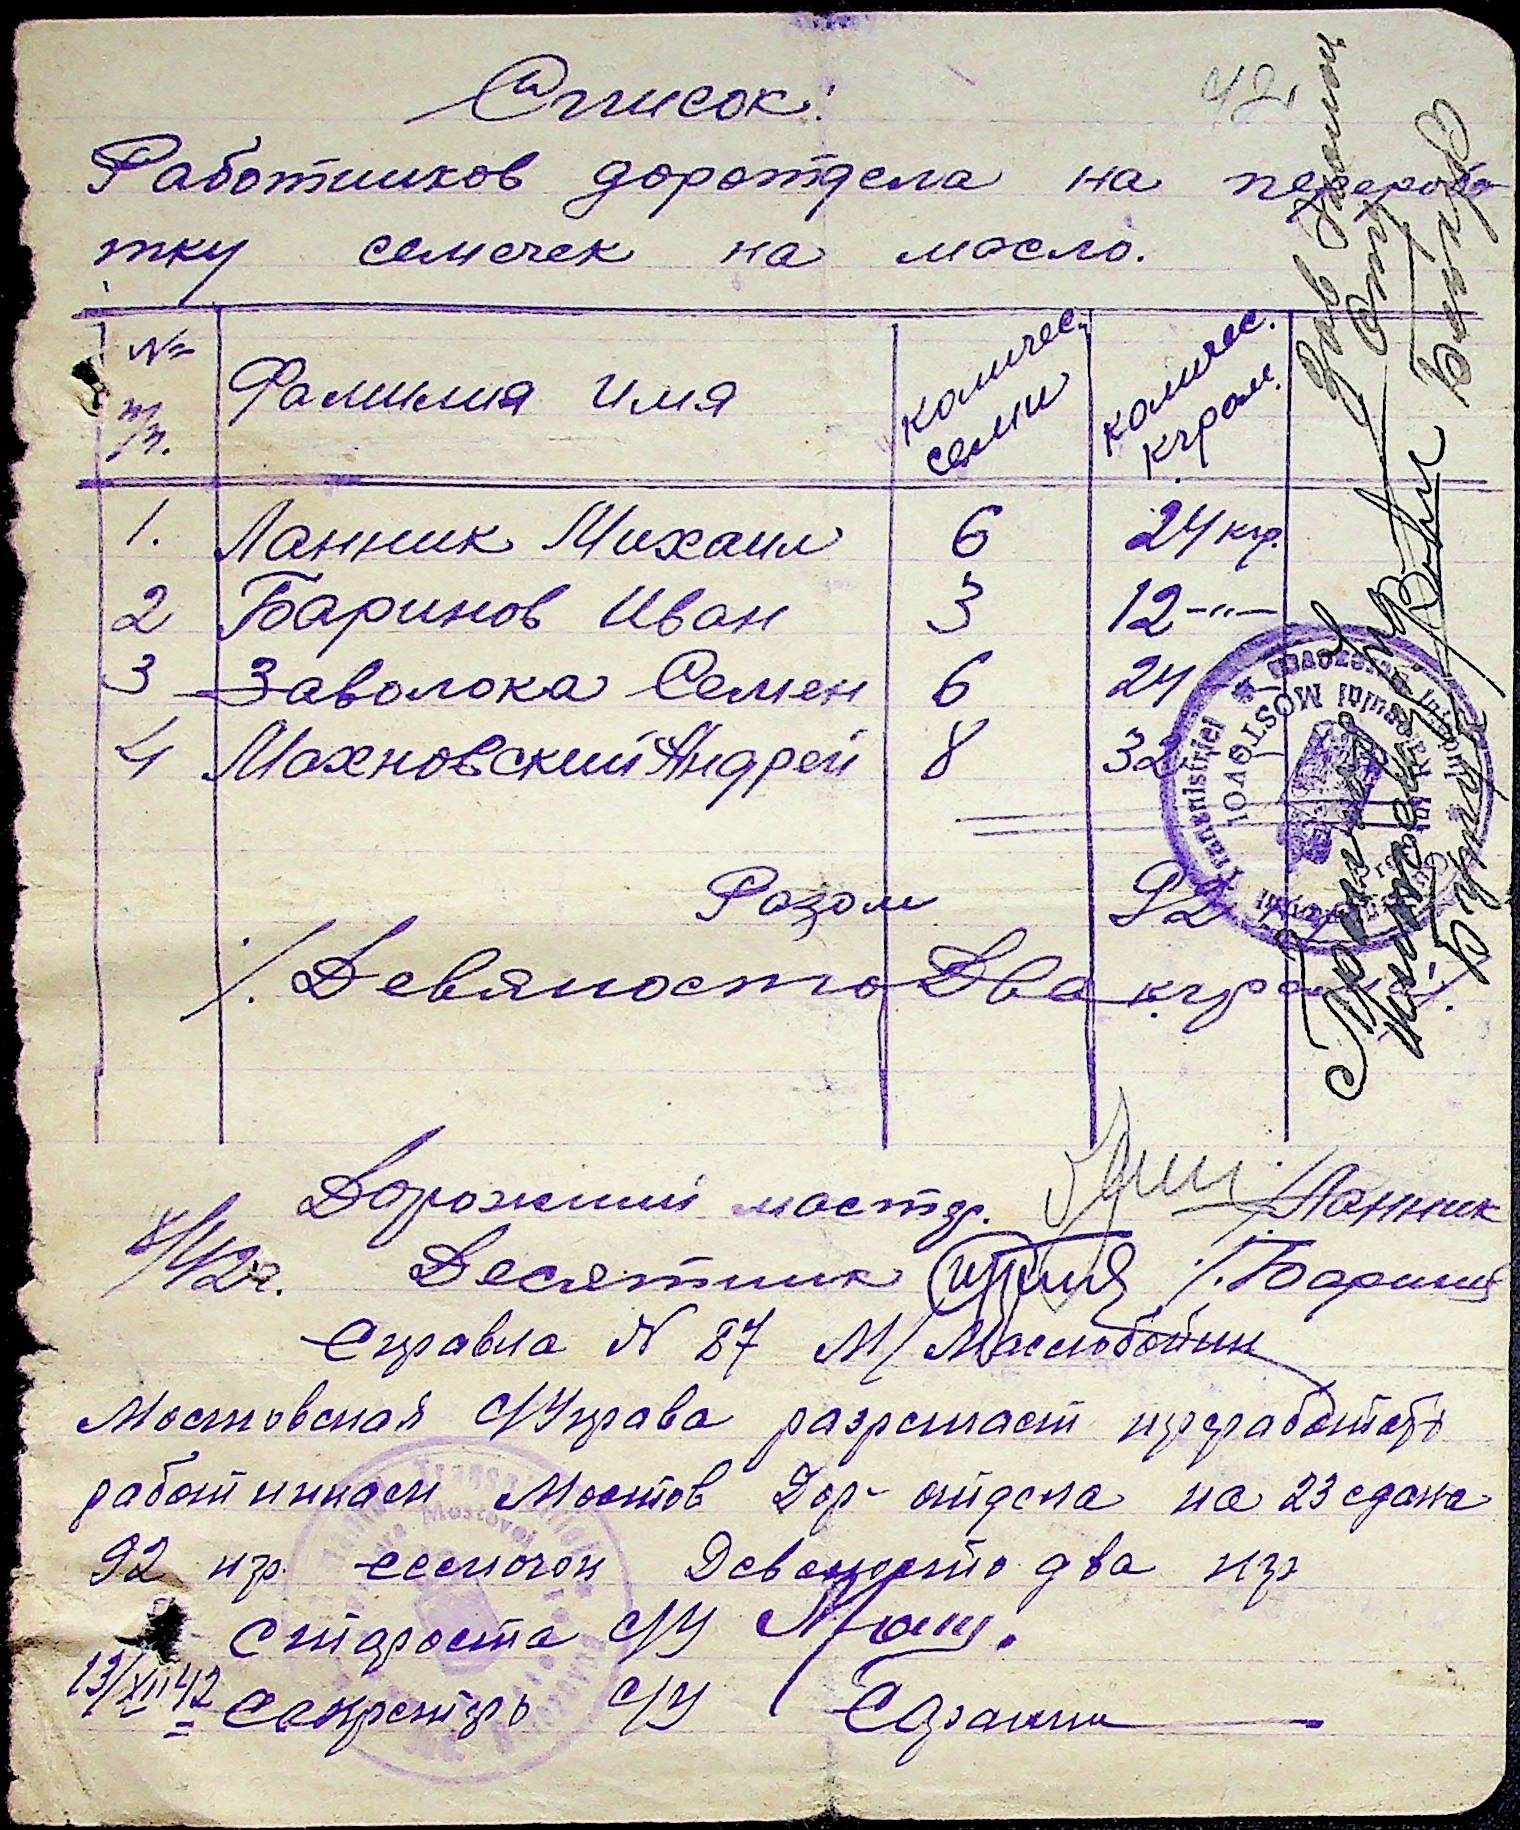 42
Список:
Работников доротдела на переработ
тку семечек на масло.
№ п/п. Фамилия имя количес. семи количес. кгром.
1. Ланник Михаил 6 24 кгр.
2 Баринов Иван 3 12 -"-
3 Заволока Семен 6 24
4 Махновский Андрей 8 32
Разом 92
/. Девяносто Два кгром /.
Дорожний мастер. /Ланник
/42г. Десятник /. Баринов
Справка N 87 М/ Маслобойни
Мостовская С/Управа разрешает переработать
работникам Мостов Дор-отдела на 23 едока
92 кгр. семечек Девеносто два кгр
Староста С/У
13/XII 42 Секретарь С/У
Transnistriei
MOSTOVOI
Зав